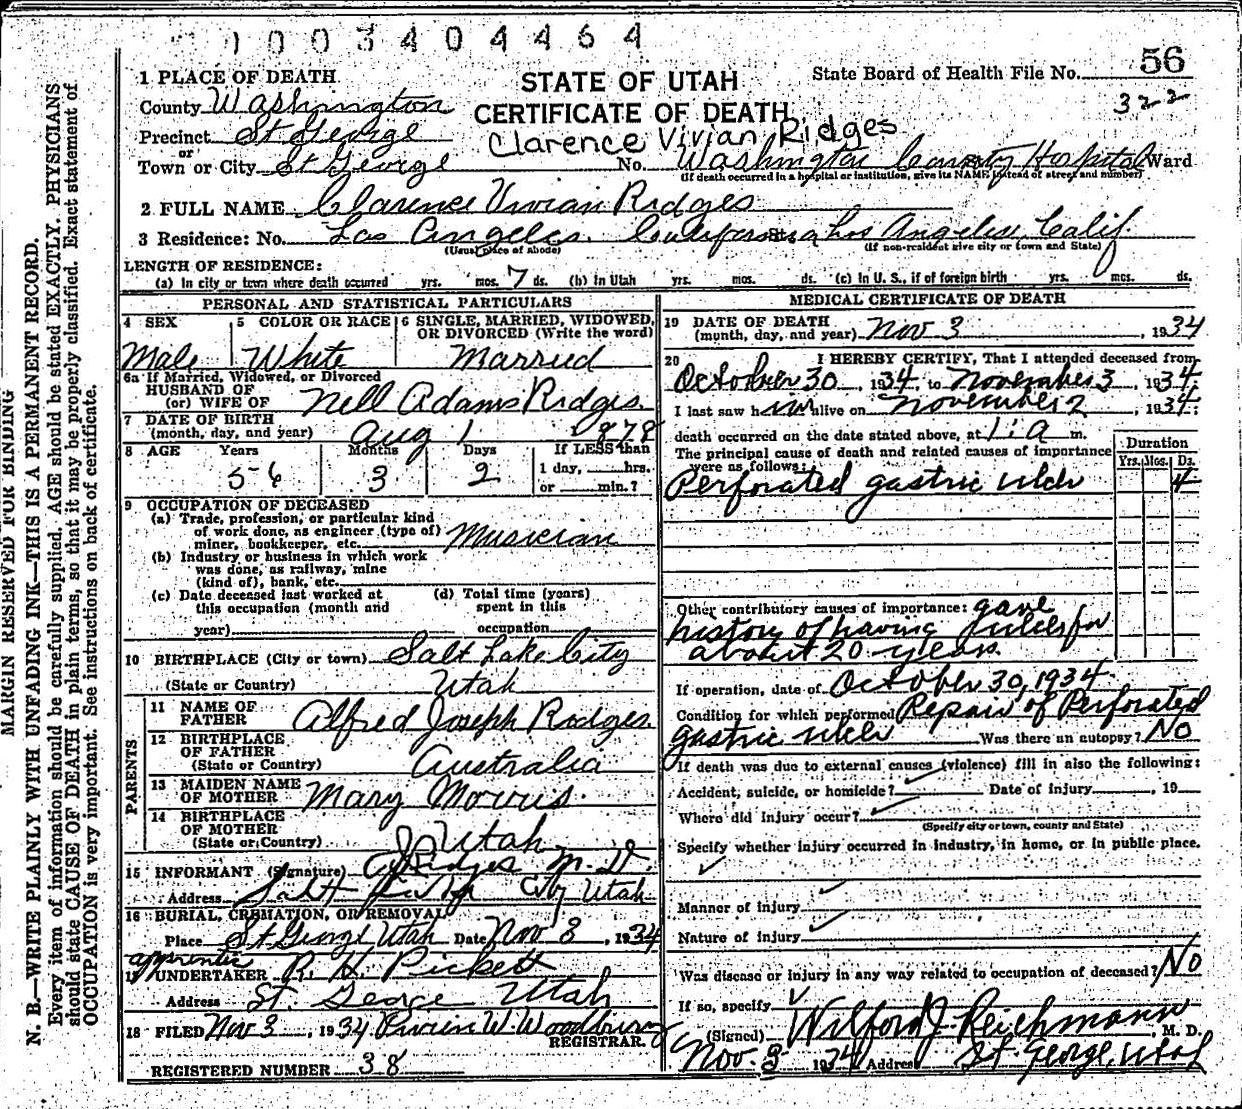 1003404464
1 PLACE OF DEATH
STATE OF UTAH
State Board of Health File No. 56
County Washington
CERTIFICATE OF DEATH
322
Precinct St George
Clarence Vivian Ridges
or
Town or City St George No. Washington County Hospital Ward
(If death occurred in a hospital or institution, give its NAME instead of street and number)
2 FULL NAME Clarence Vivian Ridges
3 Residence: No. Los Angeles. California St., Los Angeles, Calif.
(Usual place of abode) (If non-resident give city or town and State)
LENGTH OF RESIDENCE:
(a) In city or town where death occurred yrs. mos. 7 ds. (b) In Utah yrs. mos. ds. (c) In U. S., if of foreign birth yrs. mos. ds.
PERSONAL AND STATISTICAL PARTICULARS
4 SEX
Male
5 COLOR OR RACE
White
6 SINGLE, MARRIED, WIDOWED, OR DIVORCED (Write the word)
Married
6a If Married, Widowed, or Divorced
HUSBAND OF
(or) WIFE OF Nell Adams Ridges.
7 DATE OF BIRTH
(month, day, and year) Aug 1 1878
8 AGE Years Months Days If LESS than
56 3 2 1 day, hrs.
or min.?
9 OCCUPATION OF DECEASED
(a) Trade, profession, or particular kind
of work done, as engineer (type of)
miner, bookkeeper, etc. Musician
(b) Industry or business in which work
was done, as railway, mine
(kind of), bank, etc.
(c) Date deceased last worked at
this occupation (month and
year)
(d) Total time (years)
spent in this
occupation
10 BIRTHPLACE (City or town) Salt Lake City
(State or Country) Utah
PARENTS
11 NAME OF
FATHER Alfred Joseph Ridges.
12 BIRTHPLACE
OF FATHER
(State or Country) Australia
13 MAIDEN NAME
OF MOTHER Mary Morris.
14 BIRTHPLACE
OF MOTHER
(State or Country) Utah
15 INFORMANT (Signature) Ridges M. D.
Address Salt Lake City Utah
16 BURIAL, CREMATION, OR REMOVAL
Place St George Utah Date Nov 3, 1934
apprentice
17 UNDERTAKER R. H. Pickett
Address St. George Utah
18 FILED Nov 3, 1934 W. Woodbury
REGISTRAR.
REGISTERED NUMBER 38
MEDICAL CERTIFICATE OF DEATH
19 DATE OF DEATH
(month, day, and year) Nov 3, 1934
20 I HEREBY CERTIFY, That I attended deceased from
October 30, 1934, to November 3, 1934.
I last saw him alive on November 2, 1934;
death occurred on the date stated above, at 1:a m.
The principal cause of death and related causes of importance
were as follows:
Duration
Yrs. Mos. Ds.
Perforated gastric ulcer 4
Other contributory causes of importance: gave
history of having ulcers for
about 20 years.
If operation, date of October 30, 1934.
Condition for which performed Repair of Perforated
gastric ulcer Was there an autopsy? No
If death was due to external causes (violence) fill in also the following:
Accident, suicide, or homicide? Date of injury, 19
Where did injury occur?
(Specify city or town, county and State)
Specify whether injury occurred in industry, in home, or in public place.
Manner of injury
Nature of injury
Was disease or injury in any way related to occupation of deceased? No
If so, specify
(Signed) Wilford J. Reichmann, M. D.
Nov. 3 1934 Address St. George, Utah
MARGIN RESERVED FOR BINDING
N. B.—WRITE PLAINLY WITH UNFADING INK—THIS IS A PERMANENT RECORD.
Every item of information should be carefully supplied. AGE should be stated EXACTLY. PHYSICIANS
should state CAUSE OF DEATH in plain terms, so that it may be properly classified. Exact statement of
OCCUPATION is very important. See instructions on back of certificate.